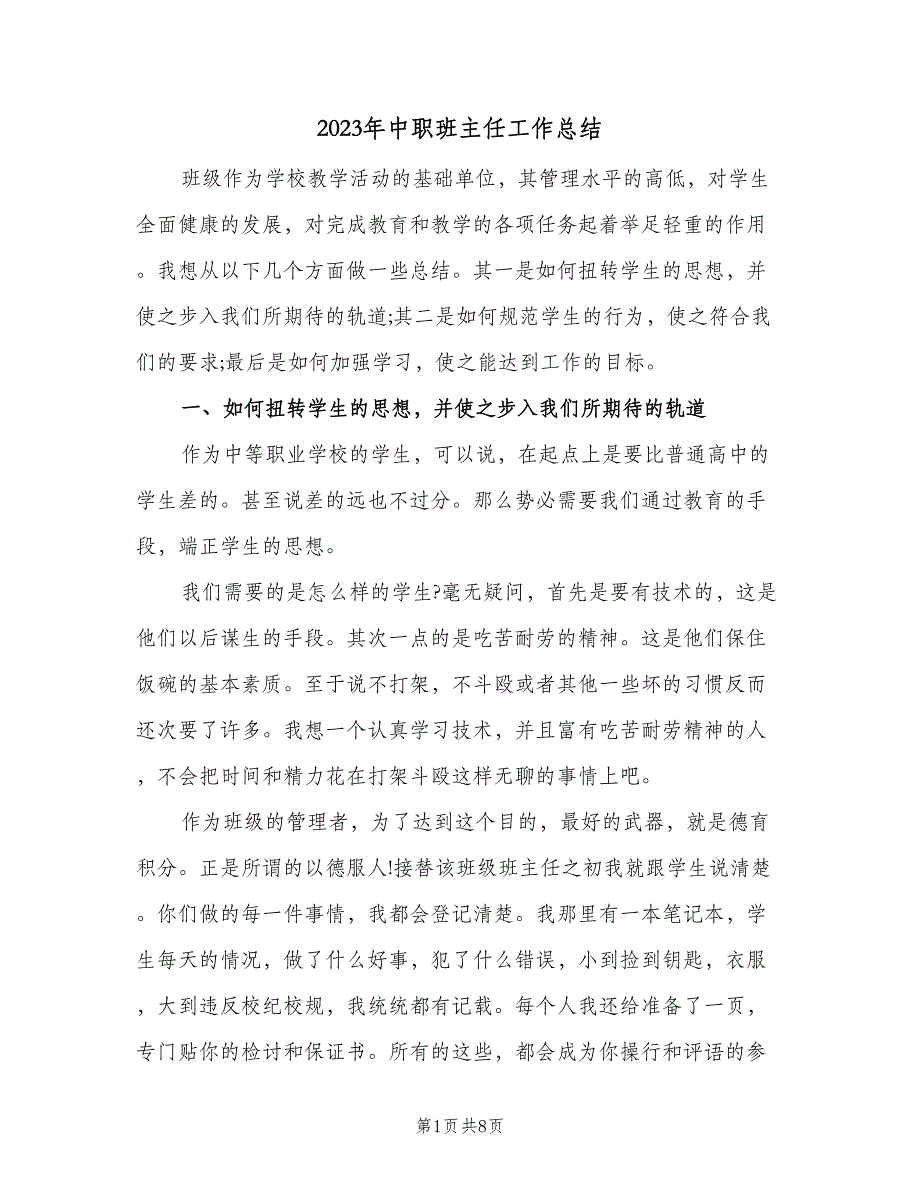 2023年中职班主任工作总结
班级作为学校教学活动的基础单位，其管理水平的高低，对学生
全面健康的发展，对完成教育和教学的各项任务起着举足轻重的作用
。我想从以下几个方面做一些总结。其一是如何扭转学生的思想，并
使之步入我们所期待的轨道;其二是如何规范学生的行为，使之符合我
们的要求;最后是如何加强学习，使之能达到工作的目标。
一、如何扭转学生的思想，并使之步入我们所期待的轨道
作为中等职业学校的学生，可以说，在起点上是要比普通高中的
学生差的。甚至说差的远也不过分。那么势必需要我们通过教育的手
段，端正学生的思想。
我们需要的是怎么样的学生?毫无疑问，首先是要有技术的，这是
他们以后谋生的手段。其次一点的是吃苦耐劳的精神。这是他们保住
饭碗的基本素质。至于说不打架，不斗殴或者其他一些坏的习惯反而
还次要了许多。我想一个认真学习技术，并且富有吃苦耐劳精神的人
，不会把时间和精力花在打架斗殴这样无聊的事情上吧。
作为班级的管理者，为了达到这个目的，最好的武器，就是德育
积分。正是所谓的以德服人!接替该班级班主任之初我就跟学生说清楚
。你们做的每一件事情，我都会登记清楚。我那里有一本笔记本，学
生每天的情况，做了什么好事，犯了什么错误，小到捡到钥匙，衣服
，大到违反校纪校规，我统统都有记载。每个人我还给准备了一页，
专门贴你的检讨和保证书。所有的这些，都会成为你操行和评语的参
第1页 共8页